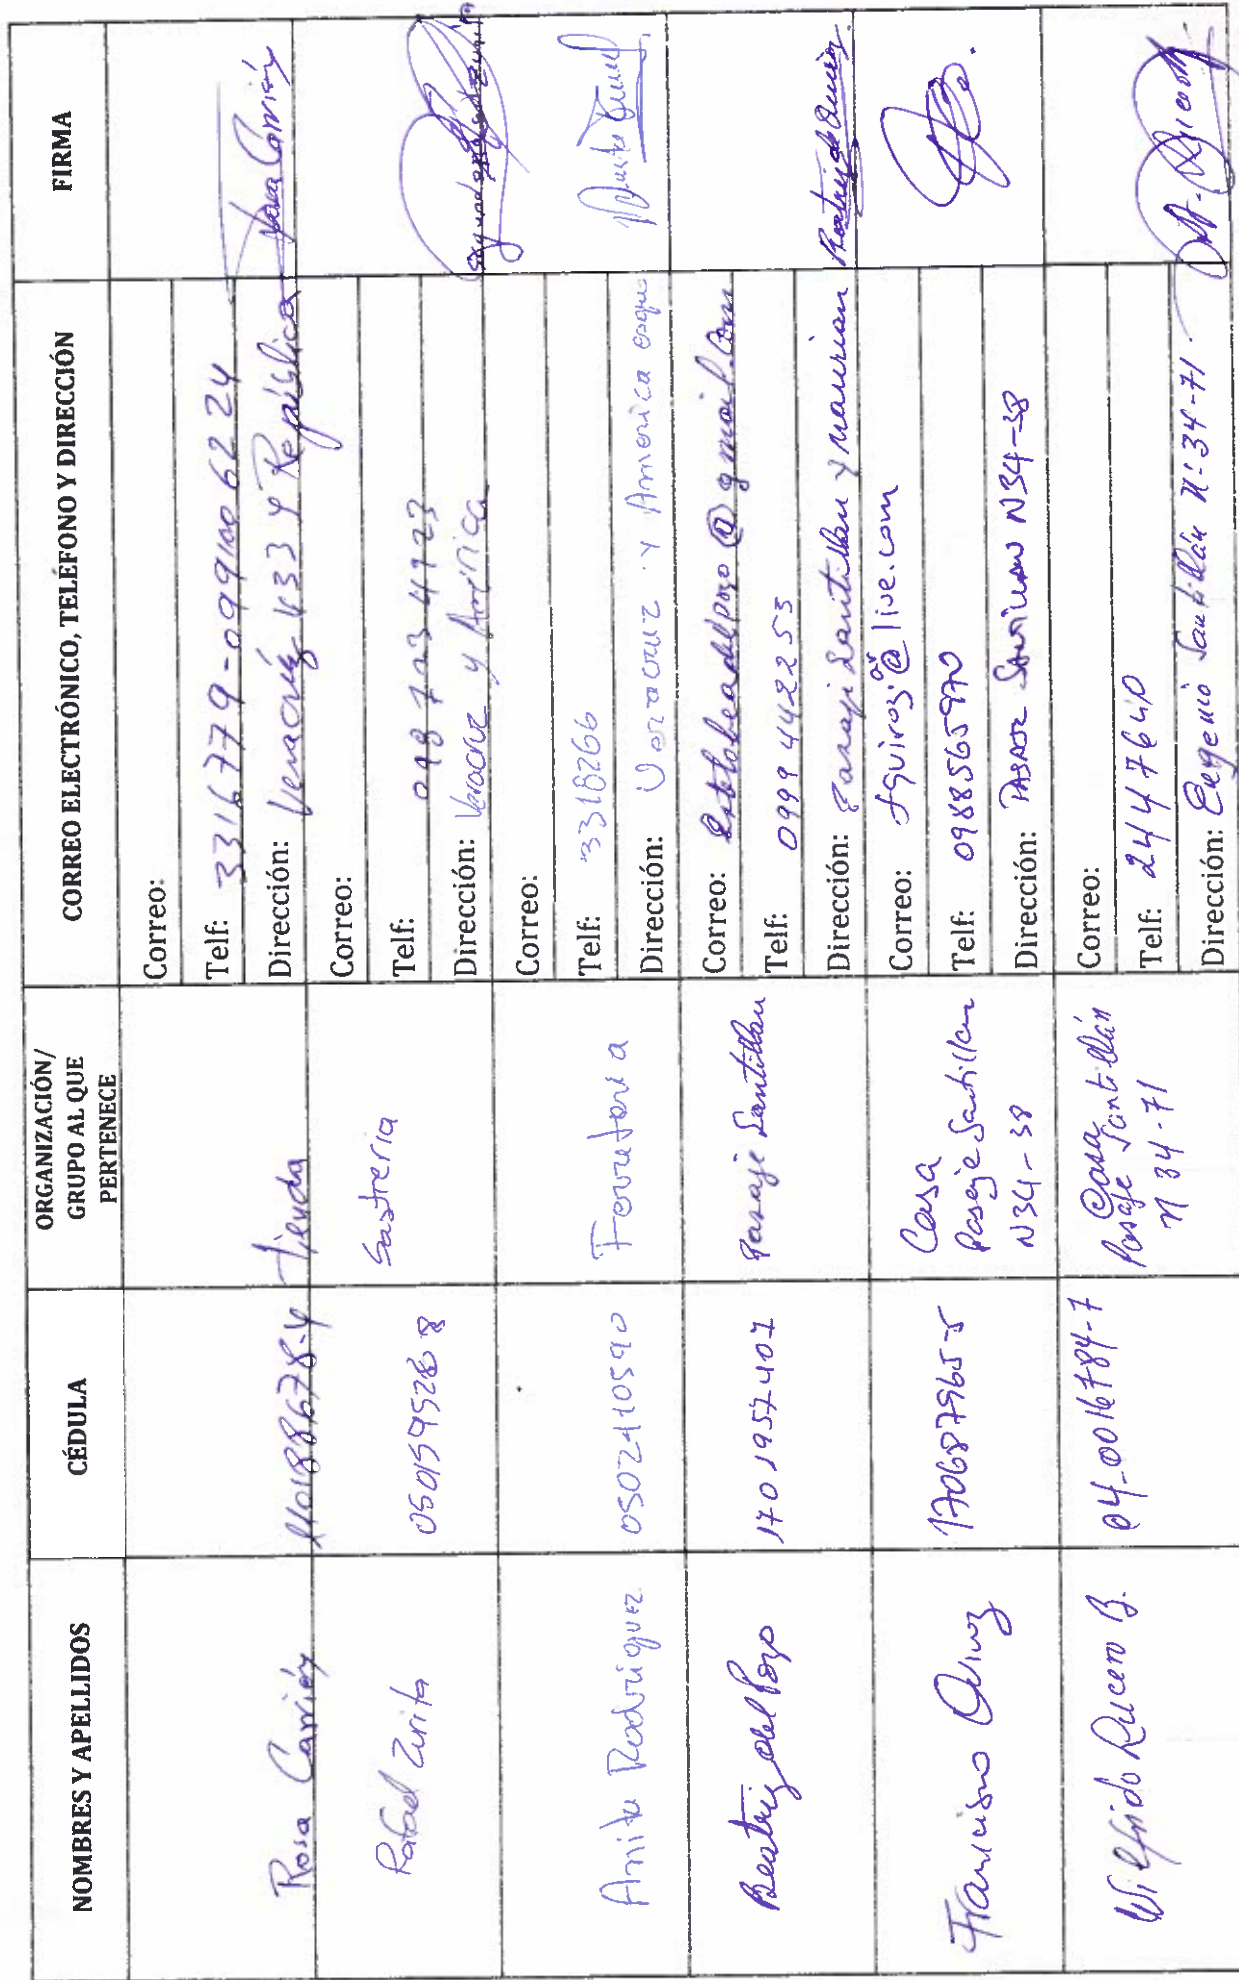 NOMBRES Y APELLIDOS
CÉDULA
ORGANIZACIÓN/
GRUPO AL QUE
PERTENECE
CORREO ELECTRÓNICO, TELÉFONO Y DIRECCIÓN
FIRMA
Rosa Carrión
110188678-4
Tienda
Correo:
Telf: 3316779-0991006224
Dirección: Veracruz 433 y República
Rosa Carrión
Rafael Zurita
0501595288
Sastreria
Correo:
Telf: 0987234123
Dirección: Veracruz y América
Anita Rodriguez
0502410590
Ferreteria
Correo:
Telf: 3318266
Dirección: Veracruz y America esque
Beatriz del Pozo
1701957407
Pasaje Santillan
Correo: @gmail.com
Telf: 0999442253
Dirección: Pasaje Santillan y
Francisno Quiroz
170687965-5
Casa
Pasaje Santillan
N34-38
Correo: @live.com
Telf: 0988565970
Dirección: N34-38
Wilfrido Lucero B.
04-0016784-7
Casa
Pasaje Santillán
N 34-71
Correo:
Telf: 2447640
Dirección: Eugenio Santillán N-34-71.